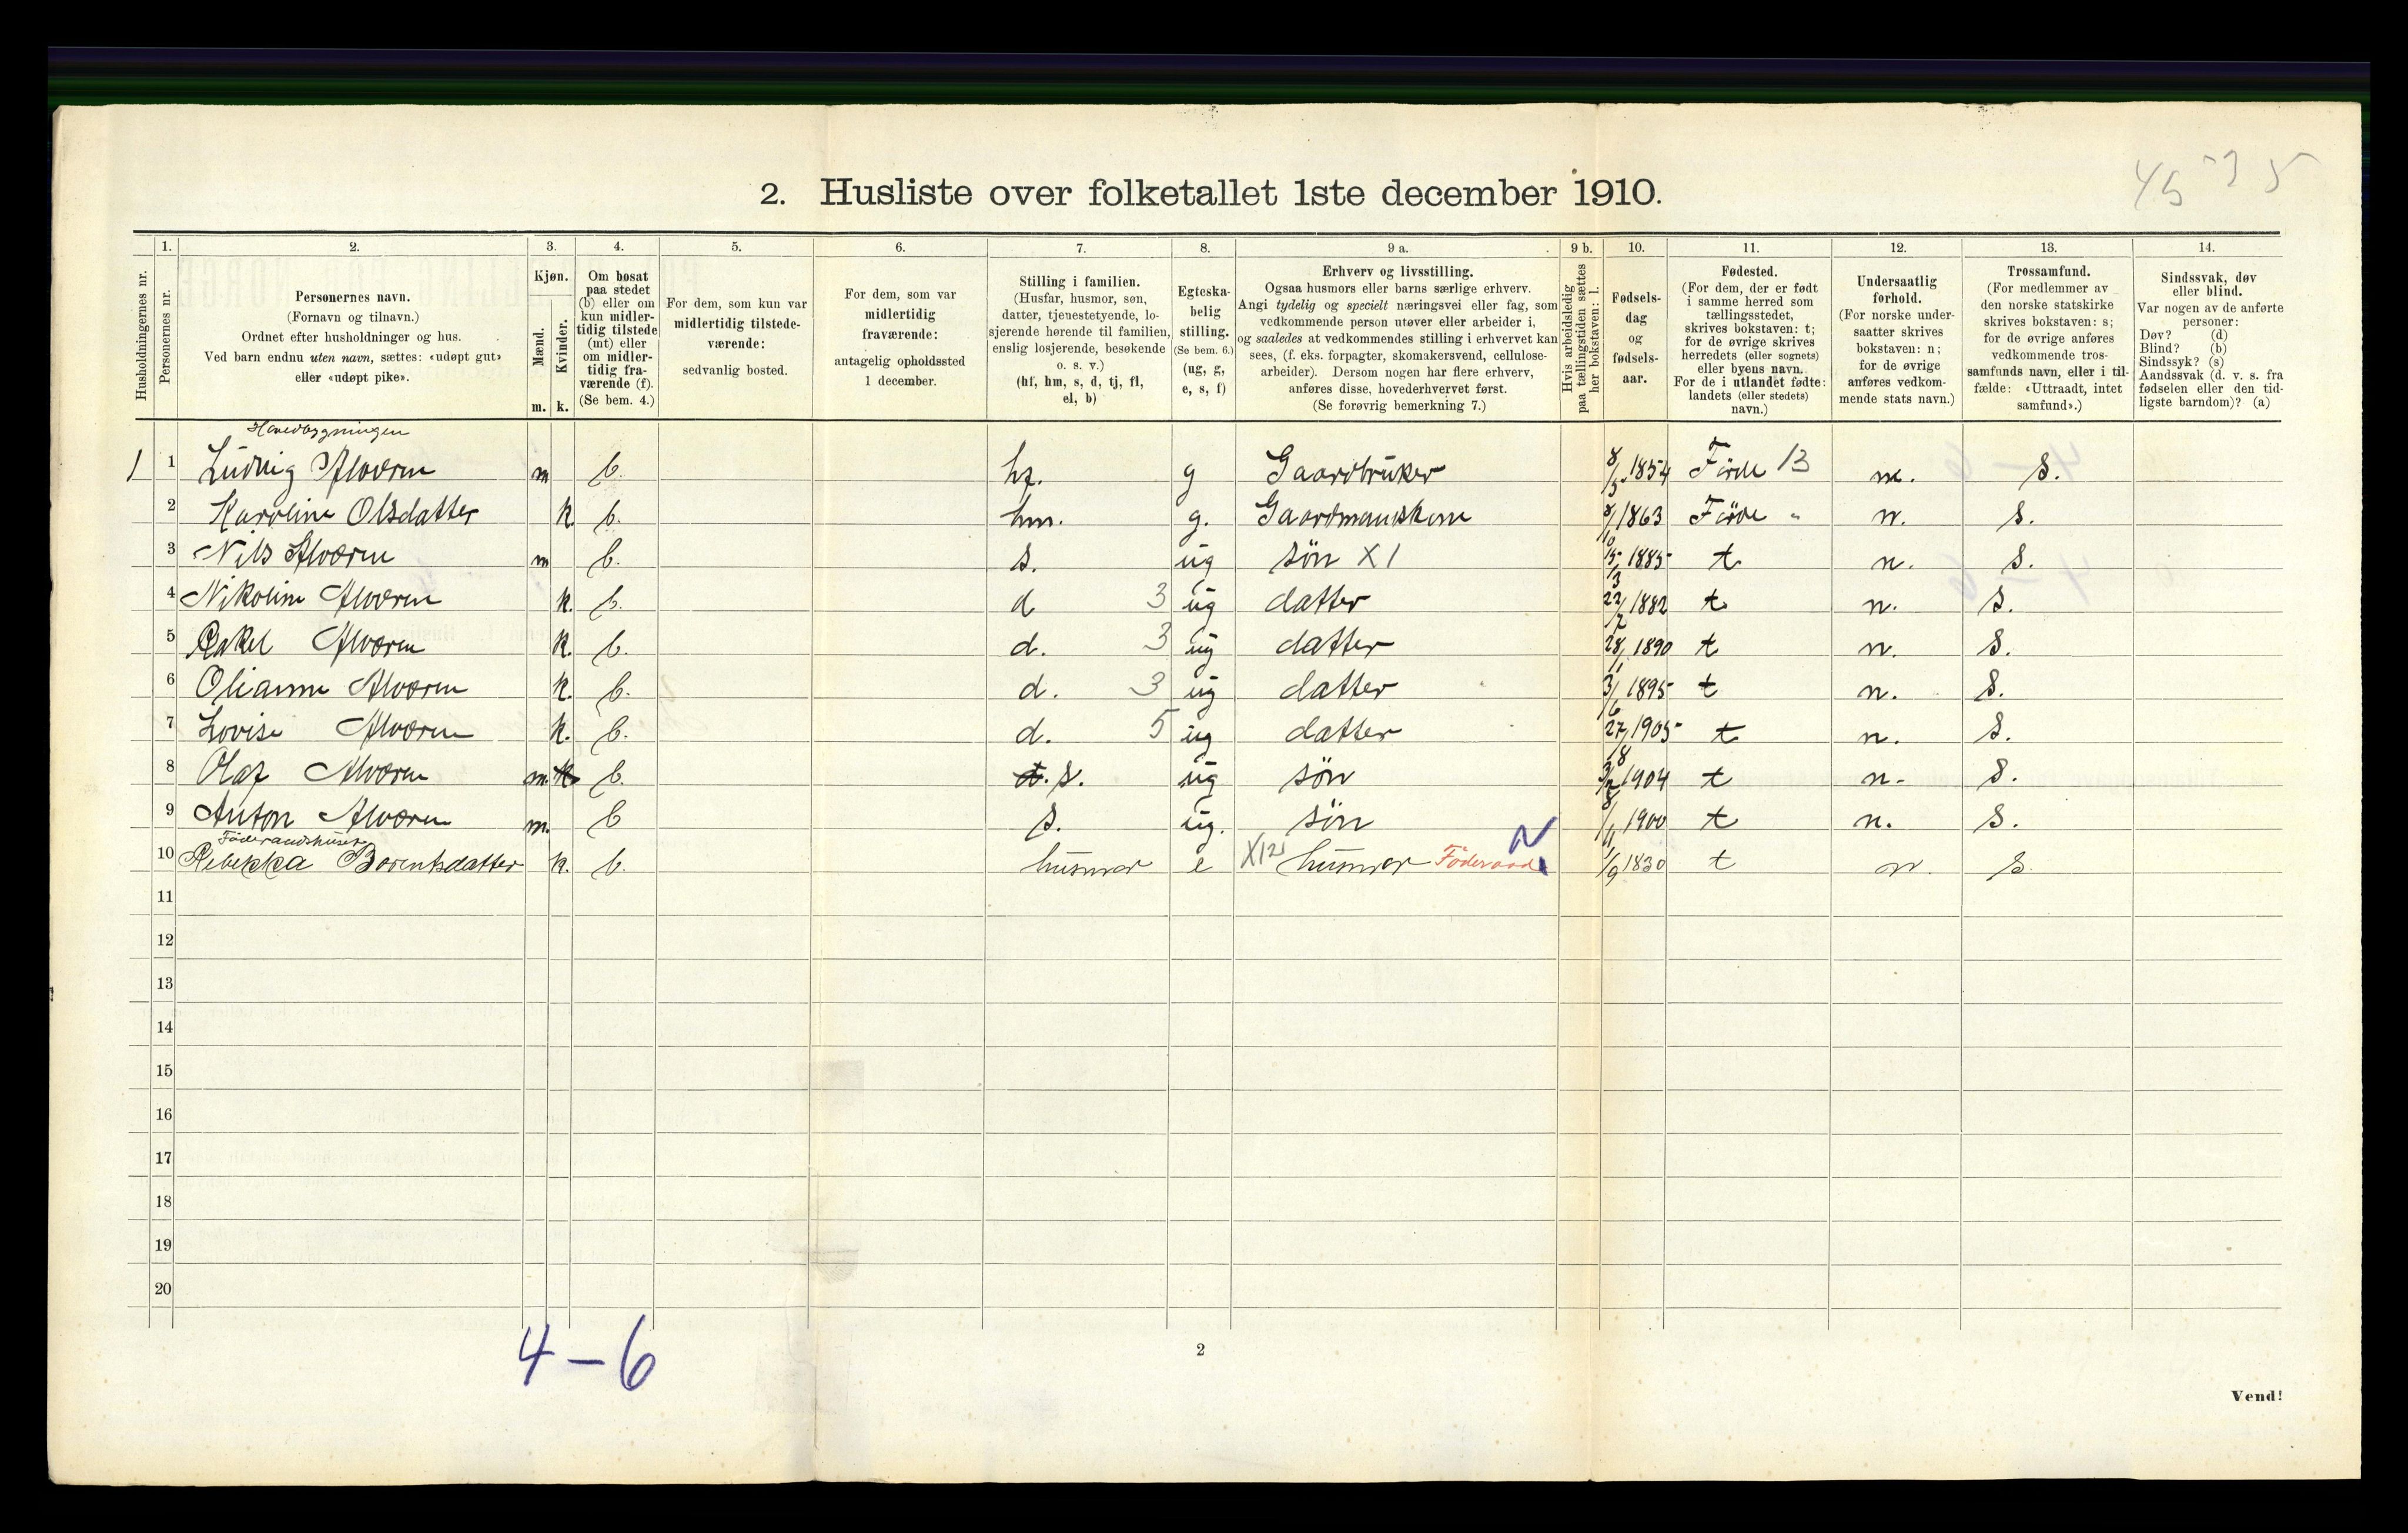 45 - 3 5
2. Husliste over folketallet 1ste december 1910.
Husholdningernes nr.
1.
Personernes nr.
2.
Personernes navn.
(Fornavn og tilnavn.)
Ordnet efter husholdninger og hus.
Ved barn endnu uten navn, sættes: «udøpt gut»
eller «udøpt pike».
3.
Kjøn.
Mænd.
Kvinder.
m. k.
4.
Om bosat
paa stedet
(b) eller om
kun midler-
tidig tilstede
(mt) eller
om midler-
tidig fra-
værende (f).
(Se bem. 4.)
5.
For dem, som kun var
midlertidig tilstede-
værende:
sedvanlig bosted.
6.
For dem, som var
midlertidig
fraværende:
antagelig opholdssted
1 december.
7.
Stilling i familien.
(Husfar, husmor, søn,
datter, tjenestetyende, lo-
sjerende hørende til familien,
enslig losjerende, besøkende
o. s. v.)
(hf, hm, s, d, tj, fl,
el, b)
8.
Egteska-
belig
stilling.
(Se bem. 6.)
(ug, g,
e, s, f)
9 a.
Erhverv og livsstilling.
Ogsaa husmors eller barns særlige erhverv.
Angi tydelig og specielt næringsvei eller fag, som
vedkommende person utøver eller arbeider i,
og saaledes at vedkommendes stilling i erhvervet kan
sees, (f. eks. forpagter, skomakersvend, cellulose-
arbeider). Dersom nogen har flere erhverv,
anføres disse, hovederhvervet først.
(Se forøvrig bemerkning 7.)
9 b.
Hvis arbeidsledig
paa tællingstiden sættes
her bokstaven: l.
10.
Fødsels-
dag
og
fødsels-
aar.
11.
Fødested.
(For dem, der er født
i samme herred som
tællingsstedet,
skrives bokstaven: t;
for de øvrige skrives
herredets (eller sognets)
eller byens navn.
For de i utlandet fødte:
landets (eller stedets)
navn.)
12.
Undersaatlig
forhold.
(For norske under-
saatter skrives
bokstaven: n;
for de øvrige
anføres vedkom-
mende stats navn.)
13.
Trossamfund.
(For medlemmer av
den norske statskirke
skrives bokstaven: s;
for de øvrige anføres
vedkommende tros-
samfunds navn, eller i til-
fælde: «Uttraadt, intet
samfund».)
14.
Sindssvak, døv
eller blind.
Var nogen av de anførte
personer:
Døv? (d)
Blind? (b)
Sindssyk? (s)
Aandssvak (d. v. s. fra
fødselen eller den tid-
ligste barndom)? (a)
Hovedbygningen
1 1 Ludvig Alværn m b. hf. g Gaardbruker 8/5 1854 Förde 13 n. s.
2 Karoline Olsdatter k b. hm. g. Gaardmandskone 8/10 1863 Förde " n. s.
3 Nils Alværn m b. s. ug sön XI 15/3 1885 t n. s.
4 Nikoline Alværn k. b. d 3 ug datter 22/7 1882 t n. s.
5 Rakel Alværn k. b. d. 3 ug datter 28/1 1890 t n. s.
6 Olianne Alværn k. b. d. 3 ug datter 3/6 1895 t n. s.
7 Lovise Alværn k. b. d. 5 ug datter 27/8 1905 t n. s.
8 Olaf Alværn m. k b. d. s. ug sön 3/2 1904 t n. s.
9 Anton Alværn m. b s. ug. sön 8/11 1900 t n. s.
Föderaadshuset
10 Rebekka Berentsdatter k. b. husmor e XI21 husmor Föderaad N 1/9 1830 t n. s
11
12
13
14
15
16
17
18
19
20
4 - 6
2
Vend!